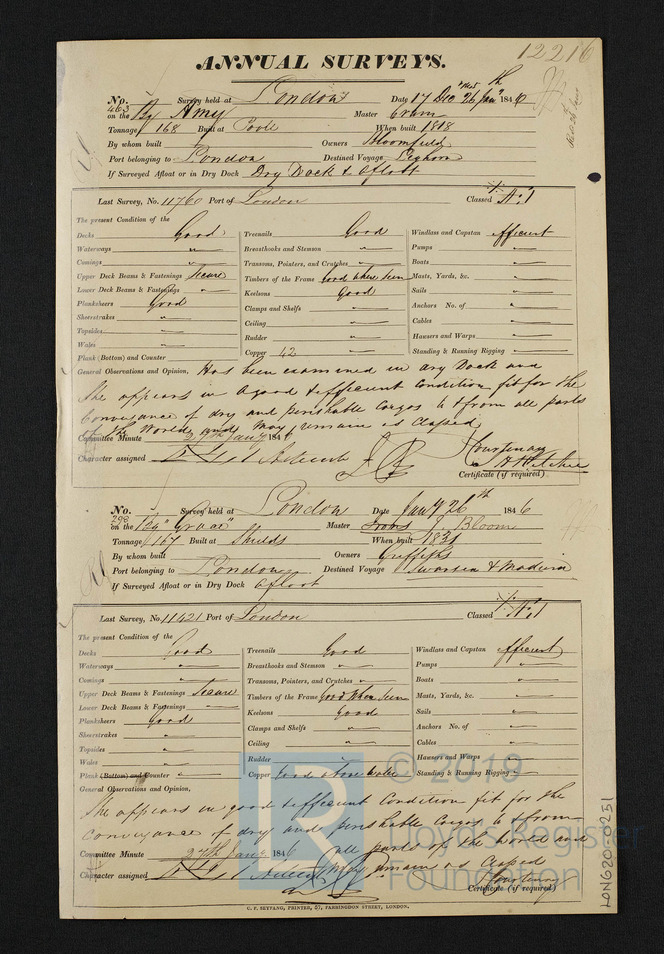 12216
ANNUAL SURVEYS.
No. 463 Survey held at London Date 17 Dec 26 Jan 1846
on the Bg Amy Master Cram
Tonnage 168 Built at Poole When built 1818
By whom built Owners Bloomfield
Port belonging to London Destined Voyage Leghorn
If Surveyed Afloat or in Dry Dock Dry Dock & Afloat
Last Survey, No. 11760 Port of London Classed A.1
The present Condition of the
Decks Good Treenails Good Windlass and Capstan Efficient
Waterways " Breasthooks and Stemson " Pumps "
Comings " Transoms, Pointers, and Crutches " Boats "
Upper Deck Beams & Fastenings Secure Timbers of the Frame Good where seen Masts, Yards, &c. "
Lower Deck Beams & Fastenings " Keelsons Good Sails "
Planksheers Good Clamps and Shelfs " Anchors No. of "
Sheerstrakes " Ceiling " Cables "
Topsides " Rudder " Hausers and Warps "
Wales " Copper 42 Standing & Running Rigging "
Plank (Bottom) and Counter "
General Observations and Opinion, Has been examined in dry Dock and
She appears in a good & efficient Condition fit for the
Conveyance of dry and perishable Cargos to & from all parts
of the World and may remain as Classed
Committee Minute 27th Jany 1846
Character assigned
Courtenay
Certificate (if required)
No. 298 Survey held at London Date Jany 26th 1846
on the Bg "Grace" Master J. Bloom
Tonnage 167 Built at Shields When built 1831
By whom built Owners Griffiths
Port belonging to London Destined Voyage Swansea & Madeira
If Surveyed Afloat or in Dry Dock Afloat
Last Survey, No. 11421 Port of London Classed A.1
The present Condition of the
Decks Good Treenails Good Windlass and Capstan Efficient
Waterways " Breasthooks and Stemson " Pumps "
Comings " Transoms, Pointers, and Crutches " Boats "
Upper Deck Beams & Fastenings Secure Timbers of the Frame Good where seen Masts, Yards, &c. "
Lower Deck Beams & Fastenings " Keelsons Good Sails "
Planksheers Good Clamps and Shelfs " Anchors No. of "
Sheerstrakes " Ceiling " Cables "
Topsides " Rudder Hausers and Warps "
Wales " Copper Good above water Standing & Running Rigging "
Plank (Bottom) and Counter "
General Observations and Opinion,
She appears in good & efficient Condition fit for the
conveyance of dry and perishable Cargos to & from
all parts of the World and
Committee Minute 27th Jany 1846 may remain as Classed
Character assigned
Courtenay
Certificate (if required)
C. F. SEYFANG, PRINTER, 57, FARRINGDON STREET, LONDON.
LON620-0251
LR
© 2019
Lloyd's Register
Foundation